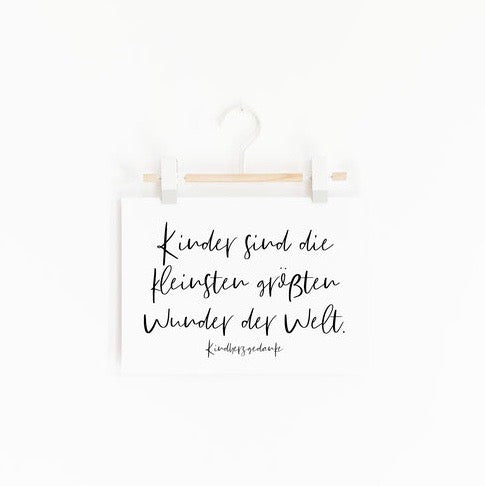 Kinder sind die
kleinsten größten
Wunder der Welt.
Kindherzgedanke